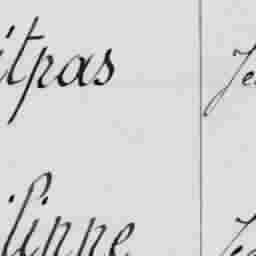 itpas Je
ilippe Jea